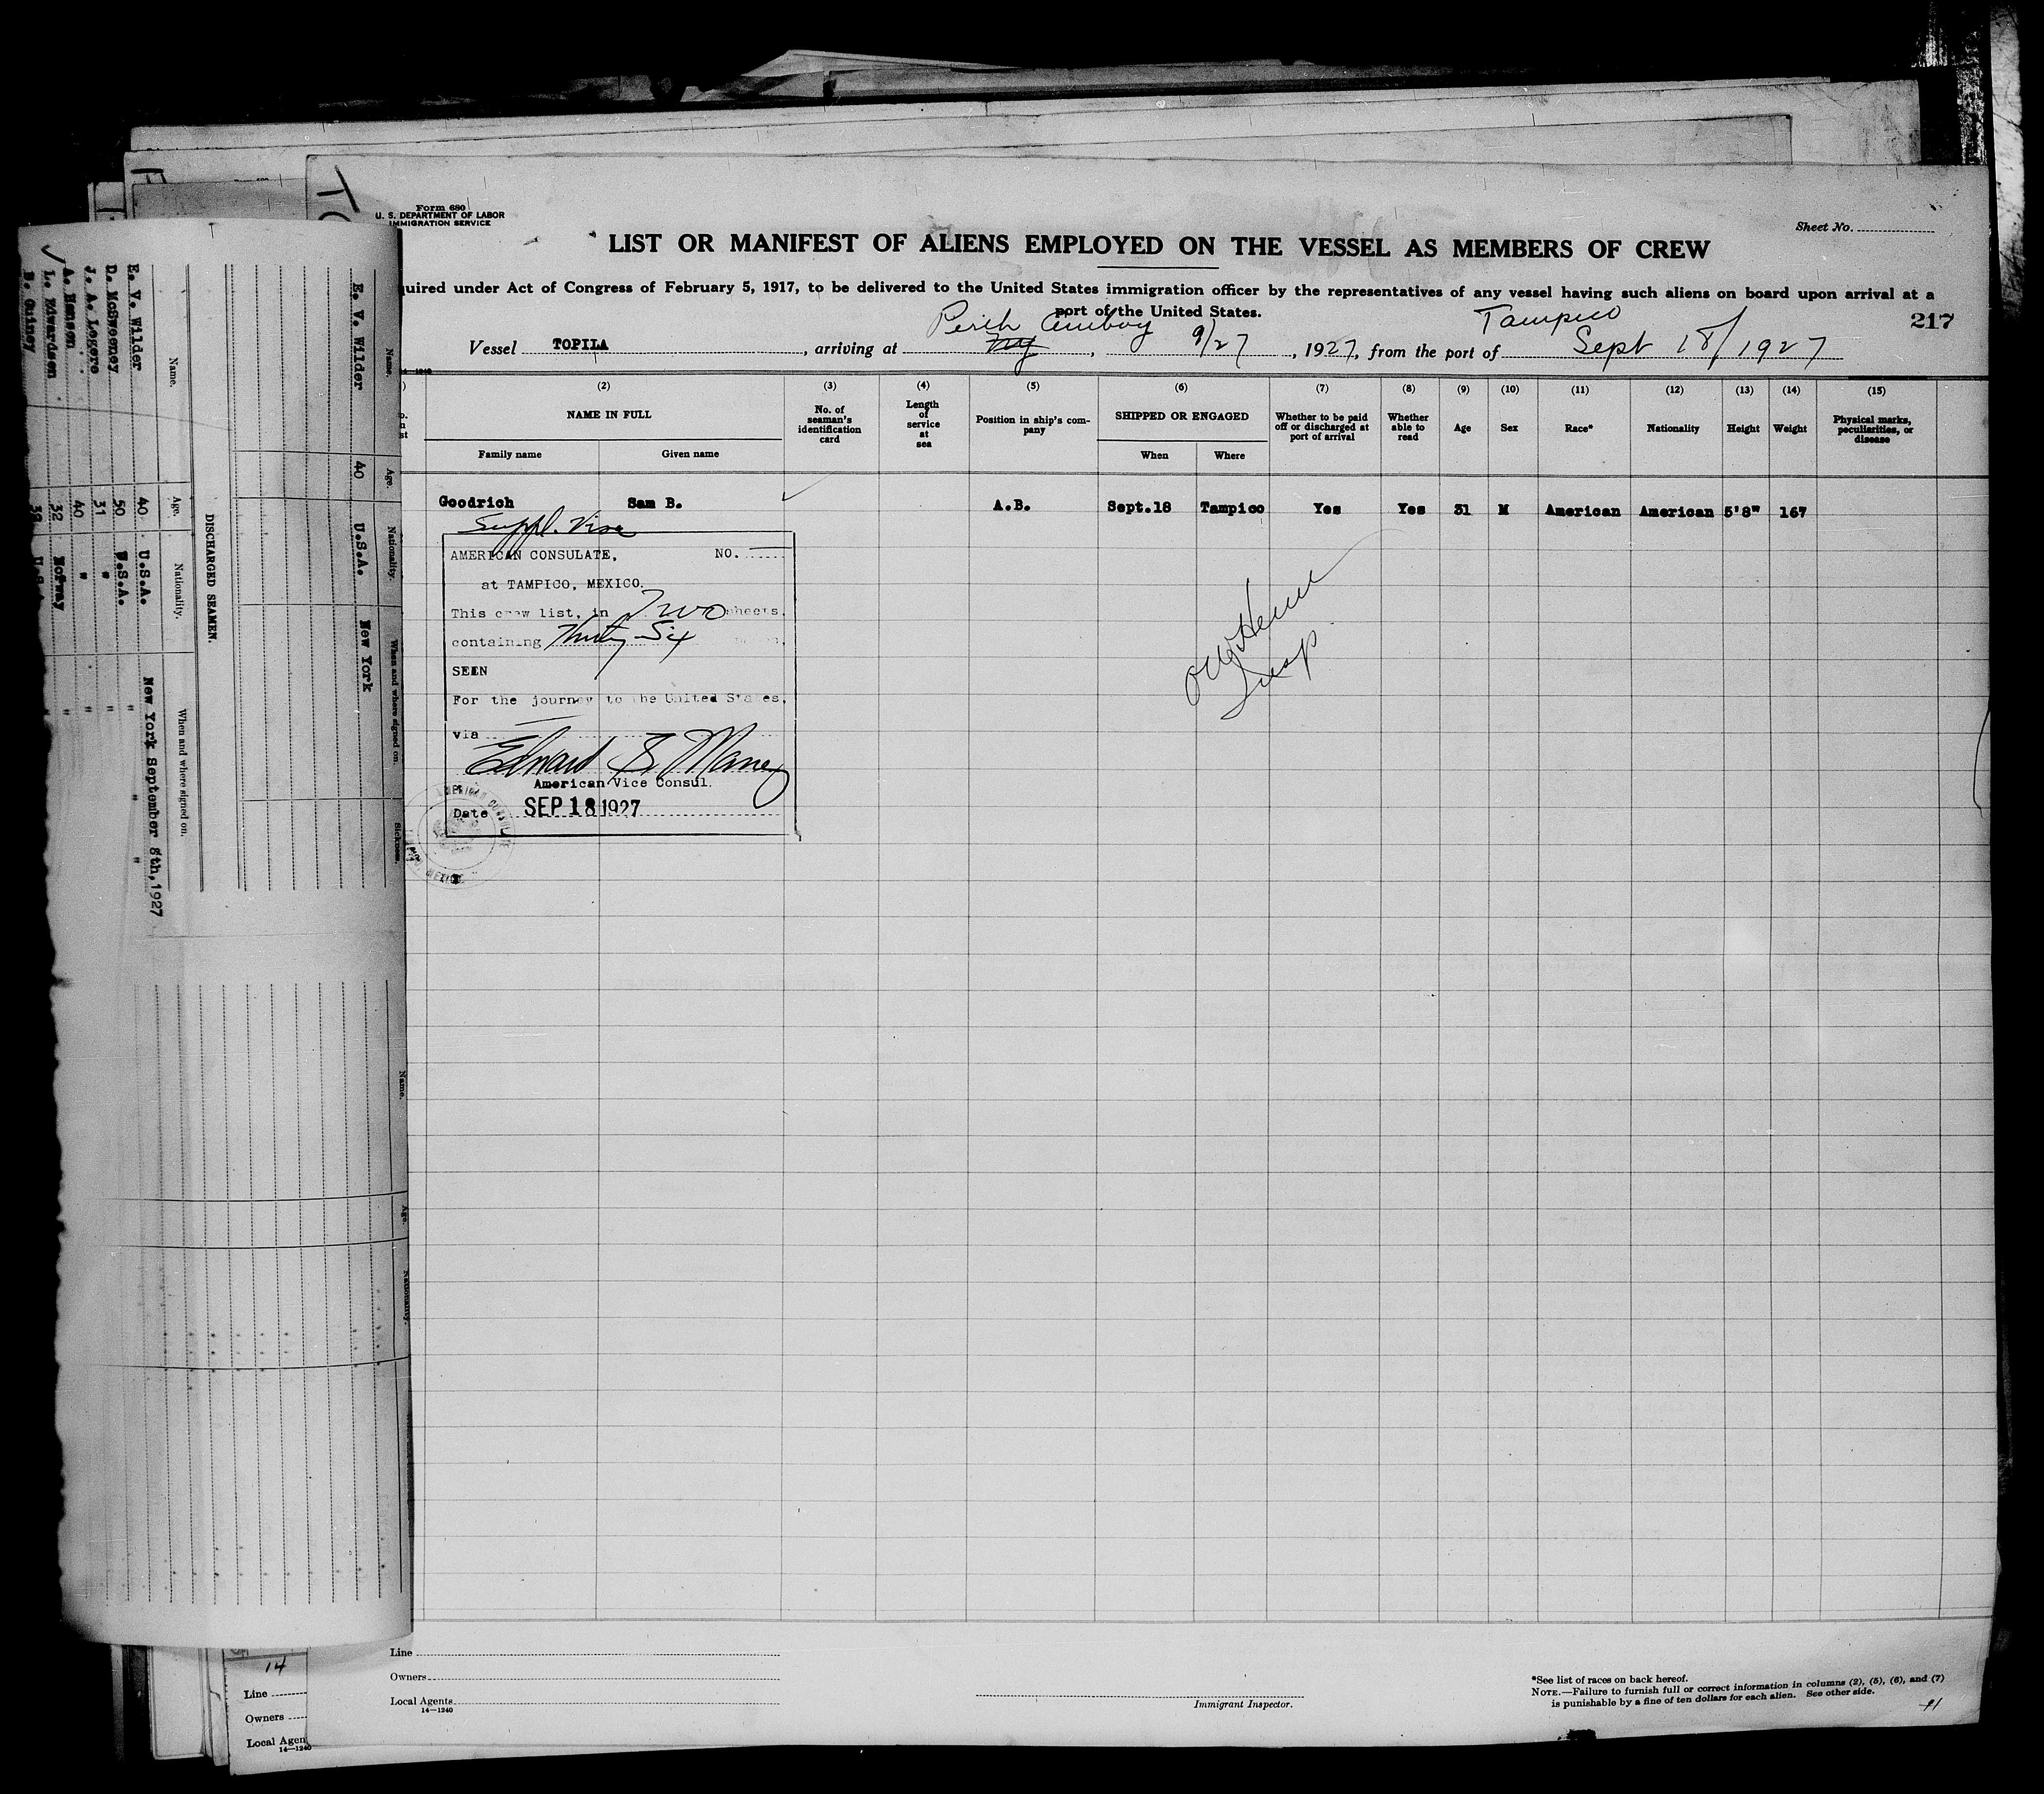 Form 680
U. S. DEPARTMENT OF LABOR
IMMIGRATION SERVICE
Sheet No.
LIST OR MANIFEST OF ALIENS EMPLOYED ON THE VESSEL AS MEMBERS OF CREW
uired under Act of Congress of February 5, 1917, to be delivered to the United States immigration officer by the representatives of any vessel having such aliens on board upon arrival at a
port of the United States.
217
Vessel TOPILA, arriving at Perth Amboy NY, 9/27, 1927, from the port of Tampico Sept 18/1927
(2) (3) (4) (5) (6) (7) (8) (9) (10) (11) (12) (13) (14) (15)
NAME IN FULL
Family name Given name
No. of seaman's identification card
Length of service at sea
Position in ship's company
SHIPPED OR ENGAGED
When Where
Whether to be paid off or discharged at port of arrival
Whether able to read
Age
Sex
Race*
Nationality
Height
Weight
Physical marks, peculiarities, or disease
Goodrich Sam B. A.B. Sept.18 Tampico Yes Yes 31 M American American 5'8" 167
Suppl. Visa
AMERICAN CONSULATE, NO.
at TAMPICO, MEXICO.
This crew list, in Two sheets,
containing Thirty Six
SEEN
For the journey to the United States,
via
American Vice Consul.
Date SEP 18 1927
Line
Owners
Local Agents
14—1240
Immigrant Inspector.
*See list of races on back hereof.
NOTE.—Failure to furnish full or correct information in columns (2), (5), (6), and (7)
is punishable by a fine of ten dollars for each alien. See other side.
Name. Age. Nationality. When and where signed on. Sickness.
E. V. Wilder 40 U.S.A. New York
DISCHARGED SEAMEN.
Name. Age. Nationality. When and where signed on.
E. V. Wilder 40 U.S.A. New York September 8th, 1927
D. McSweeney 50 U.S.A. " " "
J. A. Legere 31 " "
A. Hansen 40 " "
L. Edwardsen 32 Norway "
Name. Age. Nationality.
14
Line
Owners
Local Agen
14—1240